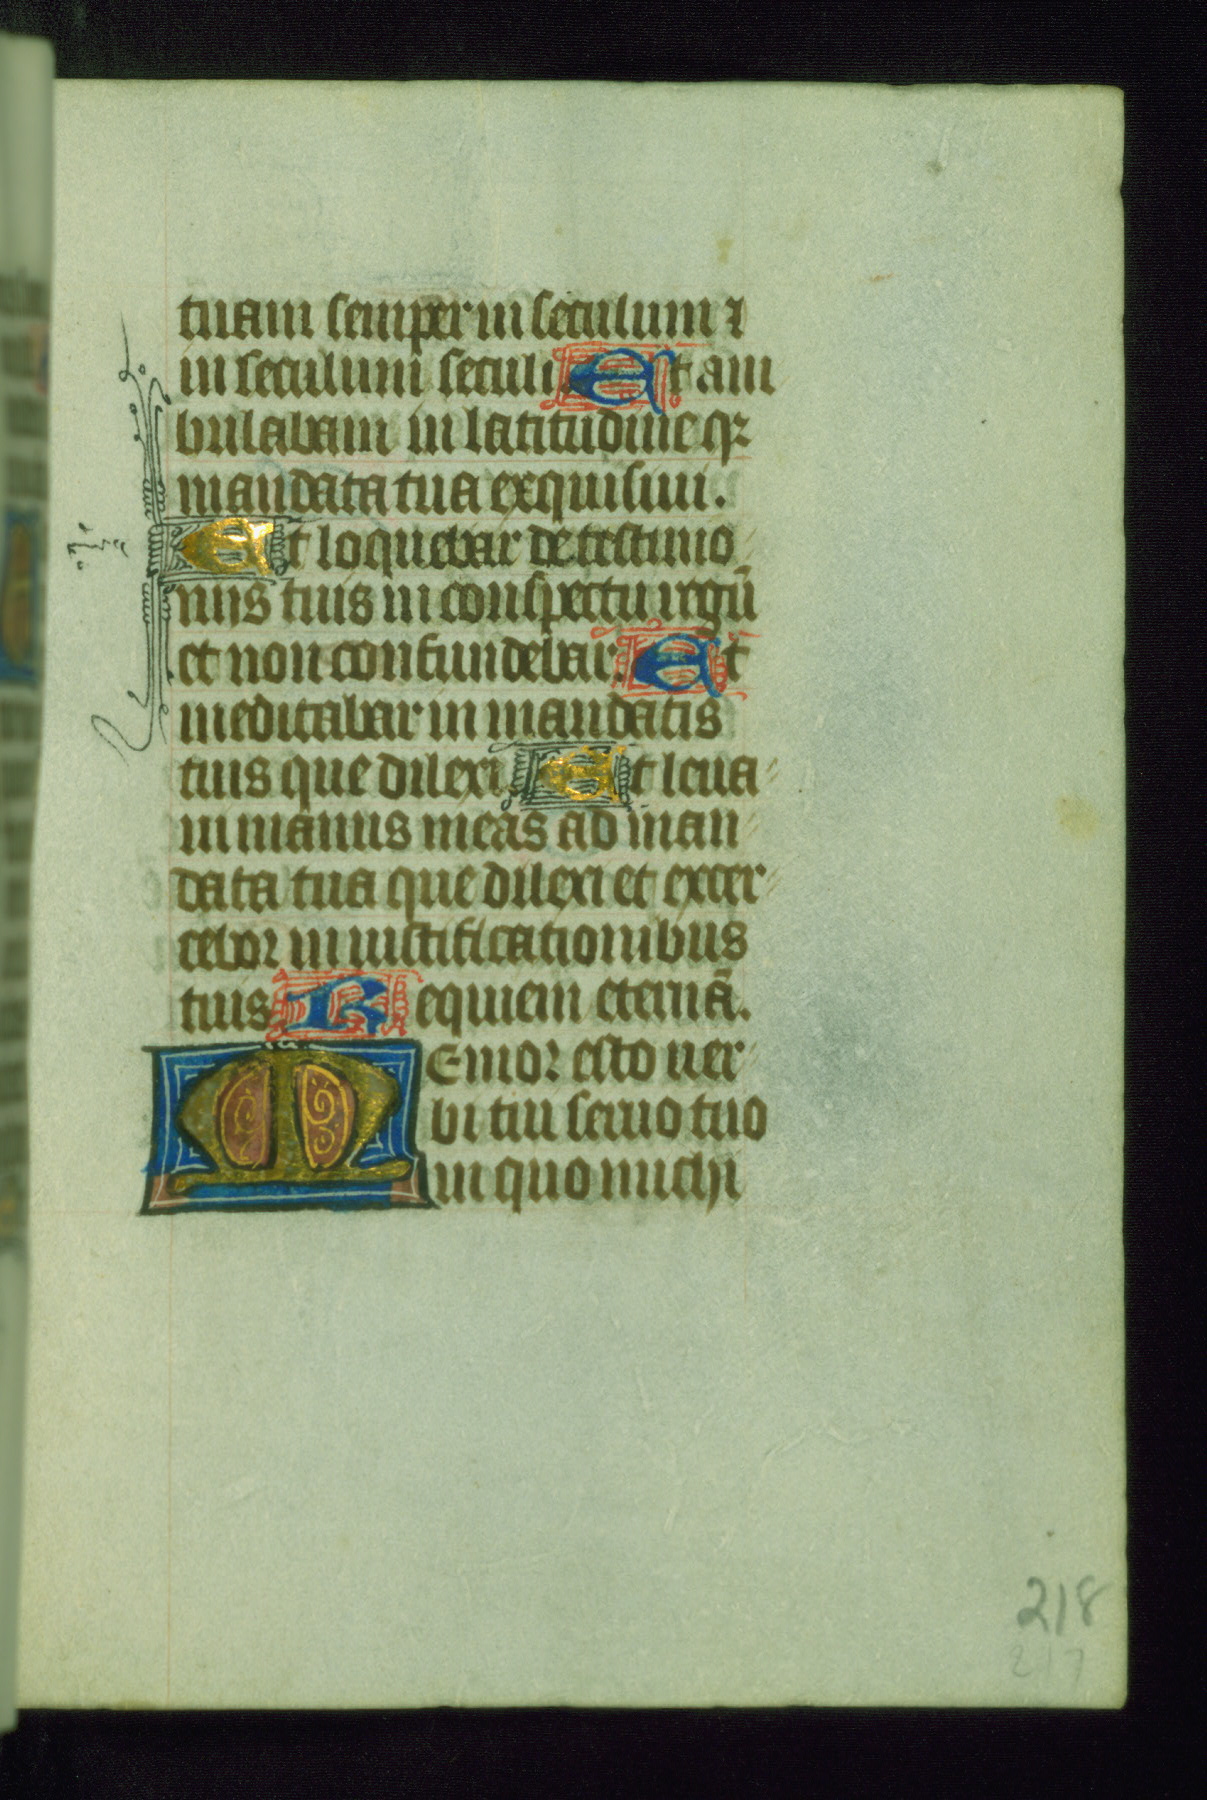 tuam semper in seculum ⁊
in seculum seculi Et am
bulabam in latitudine qꝛ
mandata tua exquisiui.
Et loquebar de testimo
niis tuis in conspectu regū
et non confundebar. Et
meditabar in mandatis
tuis que dilexi. Et leua
ui manus meas ad man
data tua que dilexi et exer
cebor in iustificationibus
tuis Requiem eternā.
Memor esto uer
bi tui seruo tuo
in quo michi
218
217